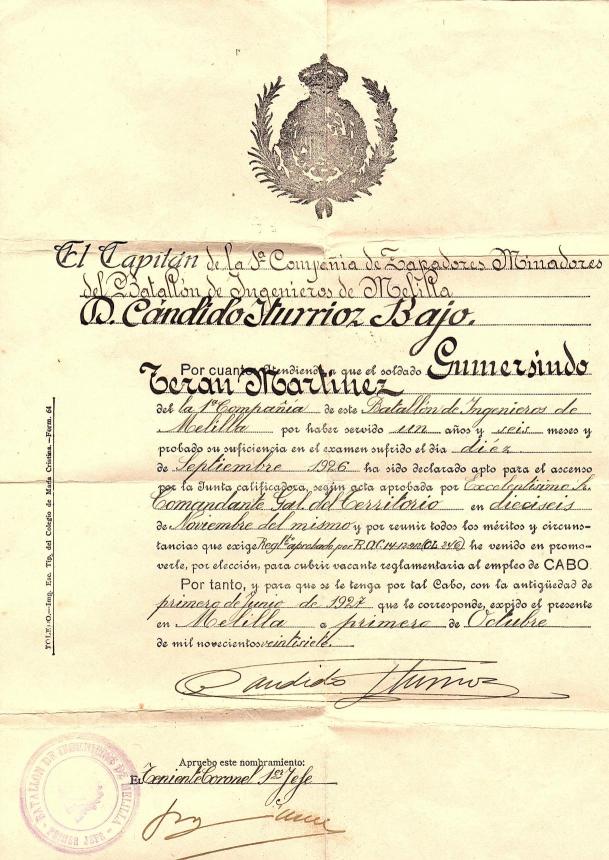 El Capitán de la 1ª Compañia de Zapadores Minadores
del Batallón de Ingenieros de Melilla
D. Cándido Iturrioz Bajo.
Por cuanto, atendiendo a que el soldado Gumersindo
Terán Martínez
de la 1ª Compañia de este Batallón de Ingenieros de
Melilla por haber servido un años y seis meses y
probado su suficiencia en el examen sufrido el día diéz
de Septiembre 1926 ha sido declarado apto para el ascenso
por la Junta calificadora, según acta aprobada por Excelentísimo Sr.
Comandante Gral. del Territorio en dieciseis
de Noviembre del mismo y por reunir todos los méritos y circuns-
tancias que exige Regltº aprobado por R.O.C. 14-12-912 (C.L. 246) he venido en promo-
verle, por elección, para cubrir vacante reglamentaria al empleo de CABO.
Por tanto, y para que se le tenga por tal Cabo, con la antigüedad de
primero de Junio de 1927 que le corresponde, expido el presente
en Melilla a primero de Octubre
de mil novecientos veintisiete.
Candido Iturrioz
Apruebo este nombramiento:
El Teniente Coronel 1er Jefe
BATALLÓN DE INGENIEROS DE MELILLA
PRIMER JEFE
TOLEDO.—Imp. Esc. Tip. del Colegio de María Cristina.—Form. 64